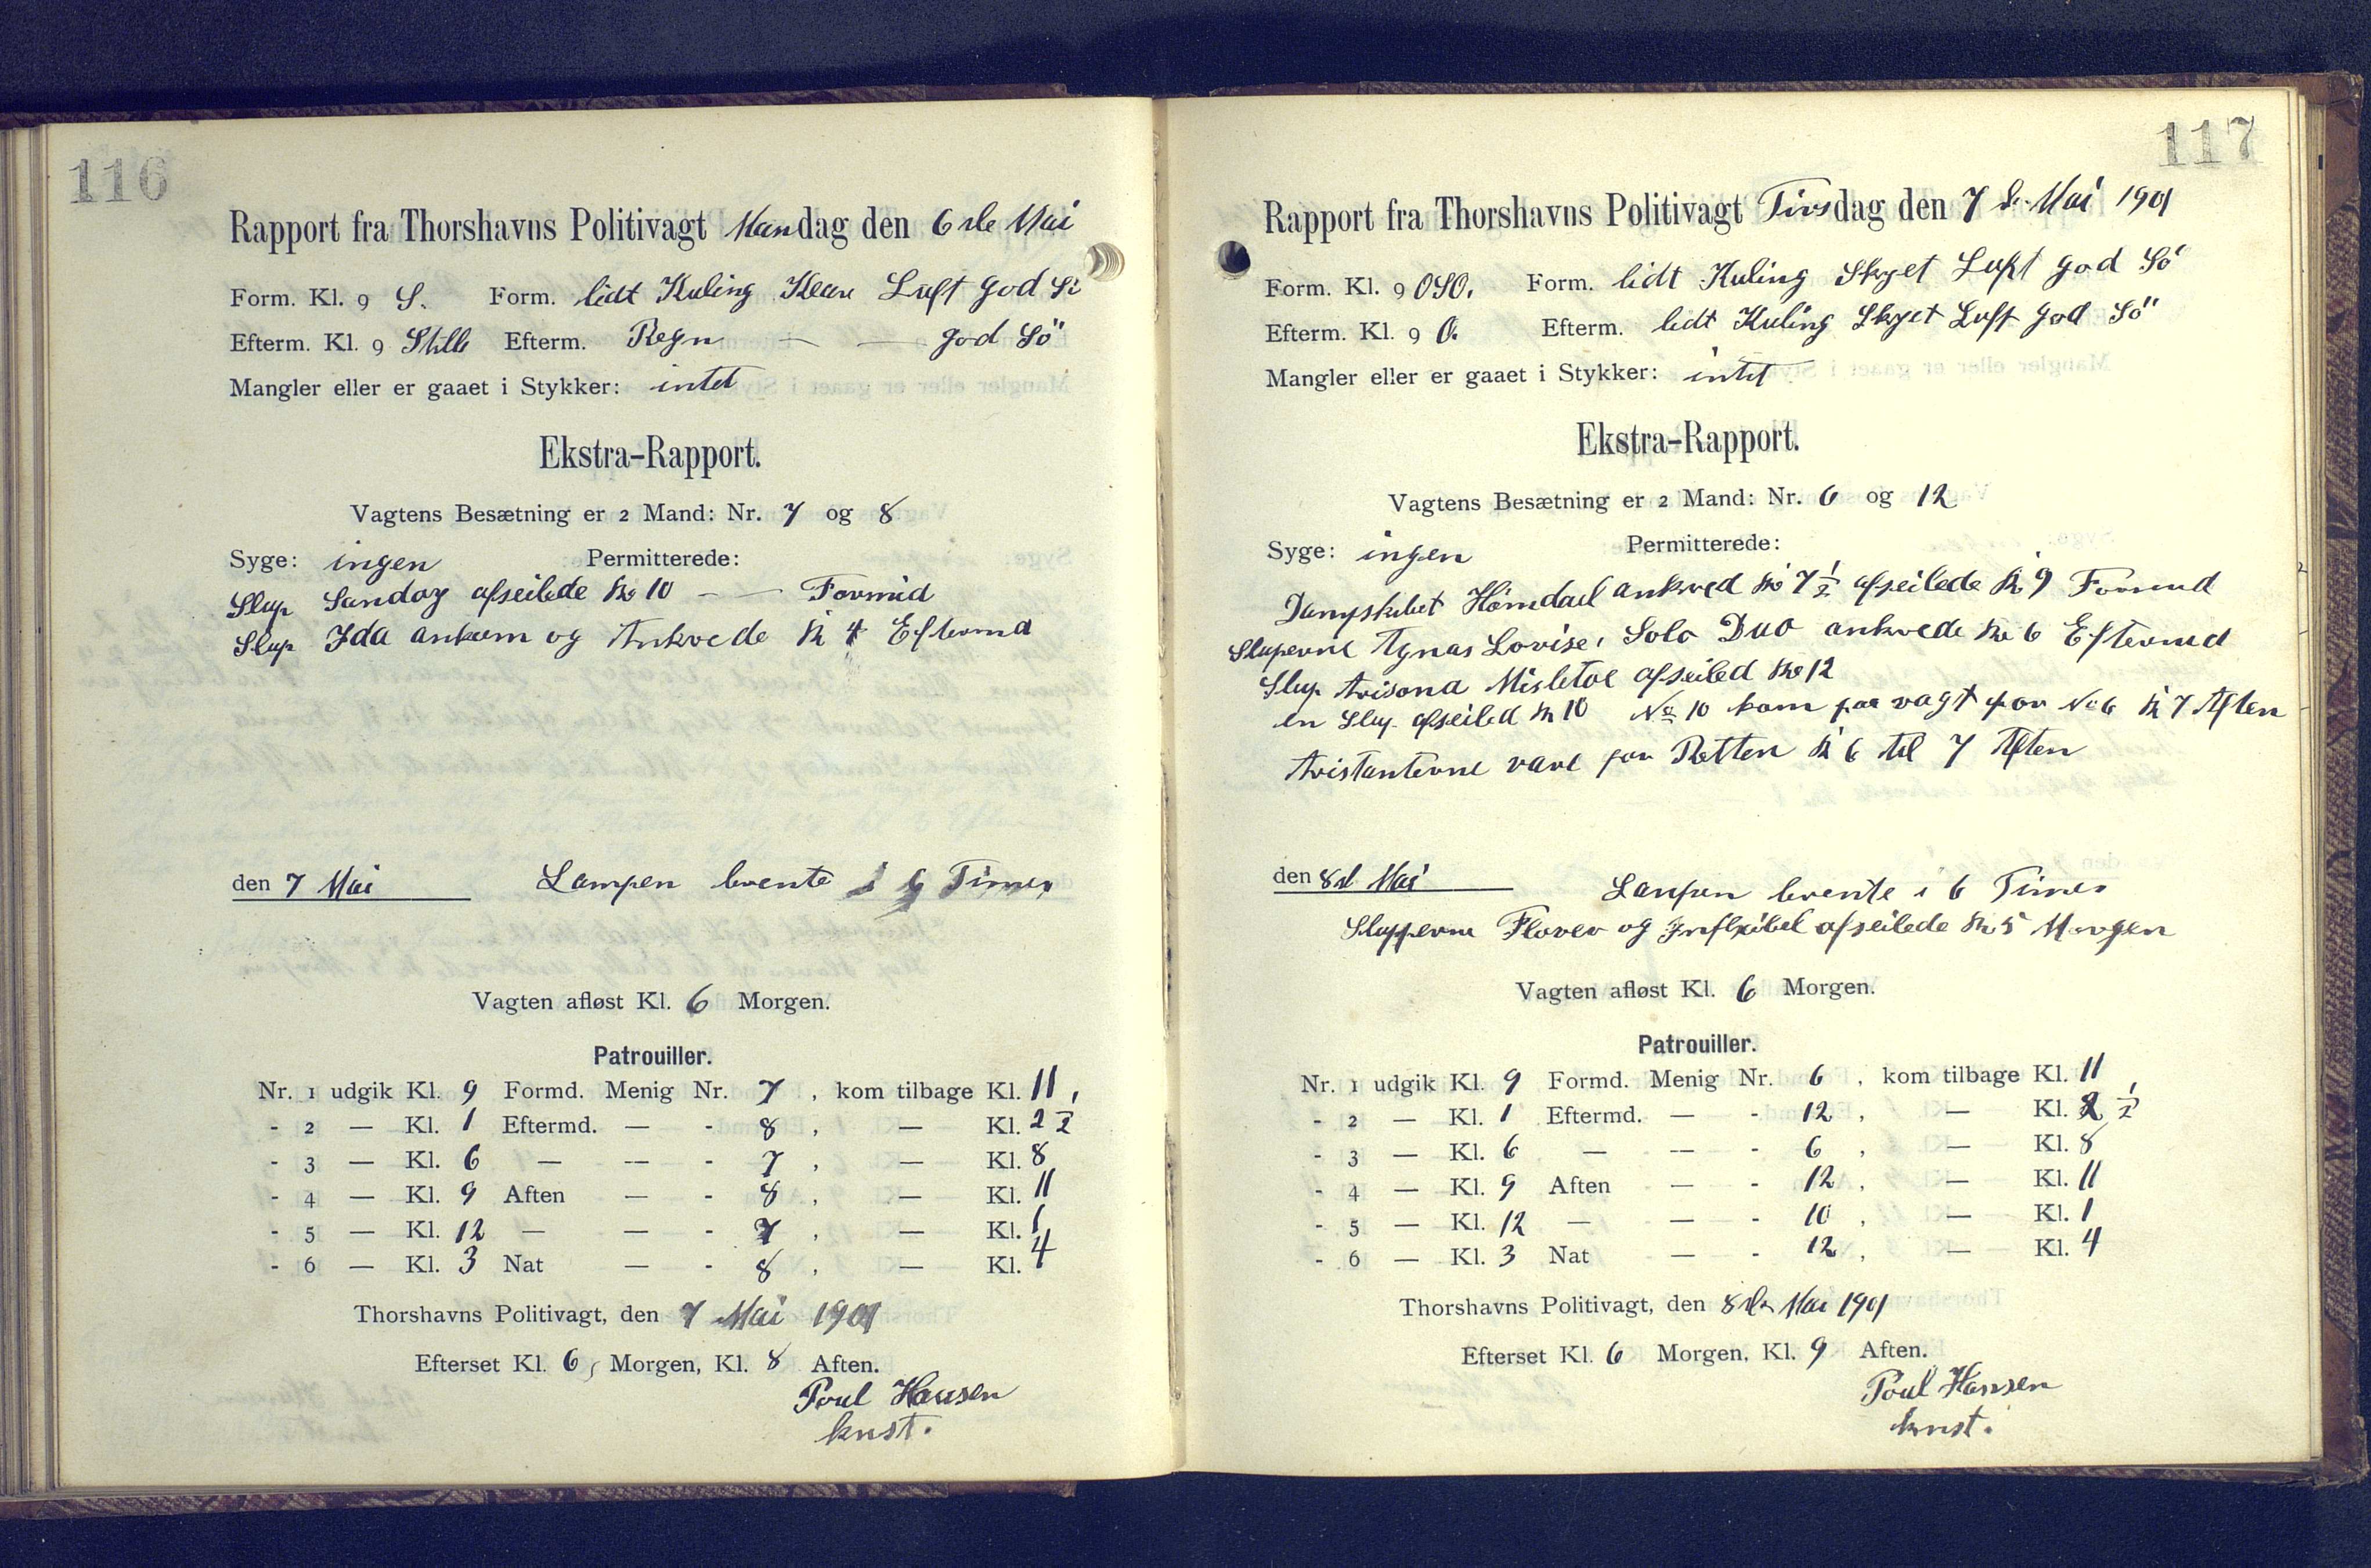 116
Rapport fra Thorshavns Politivagt Mandag den 6 de Mai
Form. Kl. 9 S. Form. lidt Kuling Klar Luft god Sö
Efterm. Kl. 9 Stille Efterm. Regn — — god Sö
Mangler eller er gaaet i Stykker: intet
Ekstra-Rapport.
Vagtens Besætning er 2 Mand: Nr. 7 og 8
Syge: ingen Permitterede:
Slup Sandoy afseilede Kl 10 — — Formid
Slup Ida ankom og Ankrede Kl 4 Eftermd
den 7 Mai Lampen brente i 6 Timer
Vagten afløst Kl. 6 Morgen.
Patrouiller.
Nr. 1 udgik Kl. 9 Formd. Menig Nr. 7, kom tilbage Kl. 11,
- 2 — Kl. 1 Eftermd. — - 8, — Kl. 2 1/2
- 3 — Kl. 6 — — - 7, — Kl. 8
- 4 — Kl. 9 Aften — - 8, — Kl. 11
- 5 — Kl. 12 — — - 7, — Kl. 1
- 6 — Kl. 3 Nat — - 8, — Kl. 4
Thorshavns Politivagt, den 7 Mai 1901
Efterset Kl. 6, Morgen, Kl. 8 Aften.
Poul Hansen
knst.
117
Rapport fra Thorshavns Politivagt Tirsdag den 7 de Mai 1901
Form. Kl. 9 OSO. Form. lidt Kuling Skyet Luft god Sö
Efterm. Kl. 9 O. Efterm. lidt Kuling Skyet Luft god Sö
Mangler eller er gaaet i Stykker: intet
Ekstra-Rapport.
Vagtens Besætning er 2 Mand: Nr. 6 og 12
Syge: ingen Permitterede:
Dampskibet Hömdael ankred Kl 7 1/2 afseilede Kl 9 Formd
Sluperne Agnas Lovise, Solo Duo ankrede Kl 6 Eftermd
Slup Arisona Misletoe afseiled Kl 12
en Slup afseiled Kl 10 No 10 kom paa vagt for No 6 Kl 7 Aften
Aristanterne vare for Retten Kl 6 til 7 Aften
den 8d Mai Lampen brente i 6 Timer
Slupperne Flover og Inflxibel afseilede Kl 5 Morgen
Vagten afløst Kl. 6 Morgen.
Patrouiller.
Nr. 1 udgik Kl. 9 Formd. Menig Nr. 6, kom tilbage Kl. 11
- 2 — Kl. 1 Eftermd. — - 12, — Kl. 2 1/2
- 3 — Kl. 6 — — - 6, — Kl. 8
- 4 — Kl. 9 Aften — - 12, — Kl. 11
- 5 — Kl. 12 — — - 10, — Kl. 1
- 6 — Kl. 3 Nat — - 12, — Kl. 4
Thorshavns Politivagt, den 8 de Mai 1901
Efterset Kl. 6 Morgen, Kl. 9 Aften.
Poul Hansen
knst.